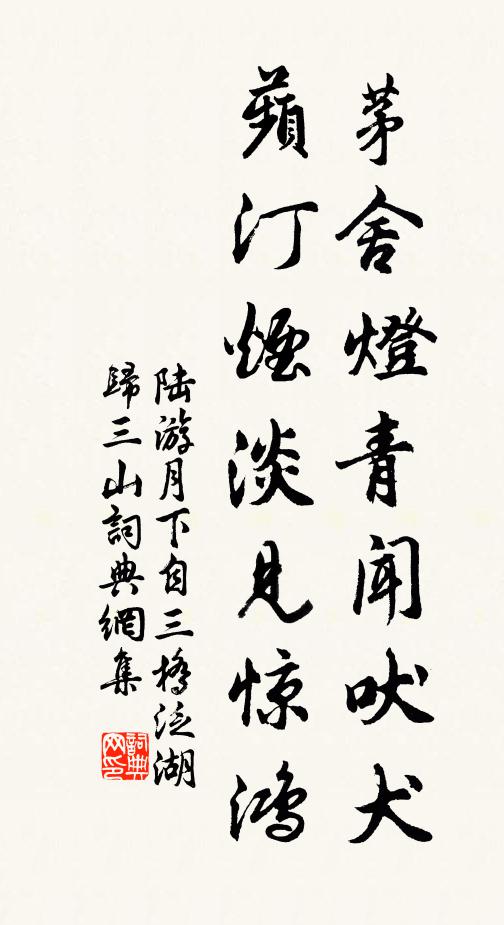 茅舍燈青闻吠犬
蘋汀煙淡见惊鸿
陆游月下自三橋泛湖
歸三山詞典網集
詞典网印